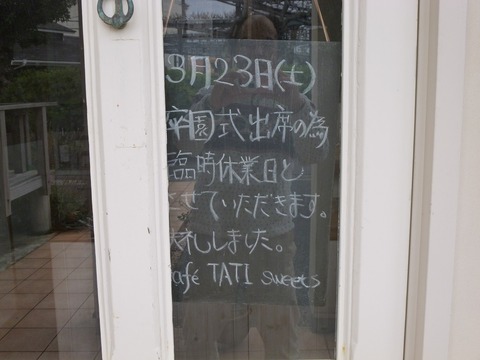 3月23日(土)
卒園式出席の為
臨時休業日と
させていただきます。
失礼しました。
café TATI sweets